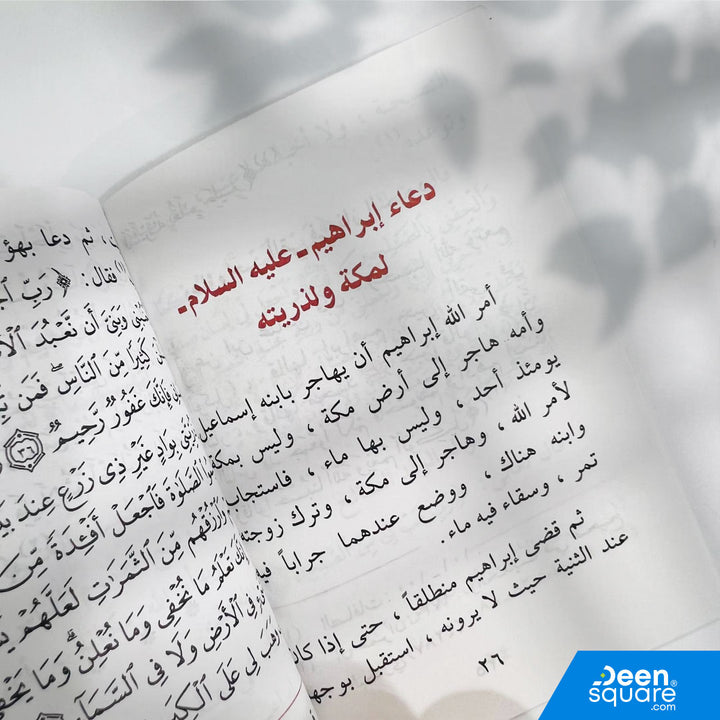 دعاء إبراهيم - عليه السلام -
لمكة ولذريته
أمر الله إبراهيم أن يهاجر بابنه إسماعيل
وأمه هاجر إلى أرض مكة ، وليس بمكة
يومئذ أحد ، وليس بها ماء ، فاستجاب
لأمر الله ، وهاجر إلى مكة ، وترك زوجته
وابنه هناك ، ووضع عندهما جراباً فيه
تمر ، وسقاء فيه ماء .
ثم قضى إبراهيم منطلقاً ، حتى إذا كان
عند الثنية حيث لا يرونه ، استقبل بوجهه
٢٦
، ثم دعا بهؤ
فقال : ﴿ رَبِّ
وَبَنِىَّ أَن نَّعْبُدَ
كَثِيرًا مِّنَ ٱلنَّاسِ فَمَن
فَإِنَّكَ غَفُورٌ رَّحِيمٌ ٣٦
بِوَادٍ غَيْرِ ذِى زَرْعٍ عِندَ
ٱلصَّلَوٰةَ فَٱجْعَلْ أَفْـِٔدَةً مِّنَ
وَٱرْزُقْهُم مِّنَ ٱلثَّمَرَٰتِ لَعَلَّهُمْ
تَعْلَمُ مَا نُخْفِى وَمَا نُعْلِنُ وَمَا
فِى ٱلْأَرْضِ وَلَا فِى ٱلسَّمَآءِ
وَهَبَ لِى عَلَى ٱلْكِبَرِ
Deen
square®
.com